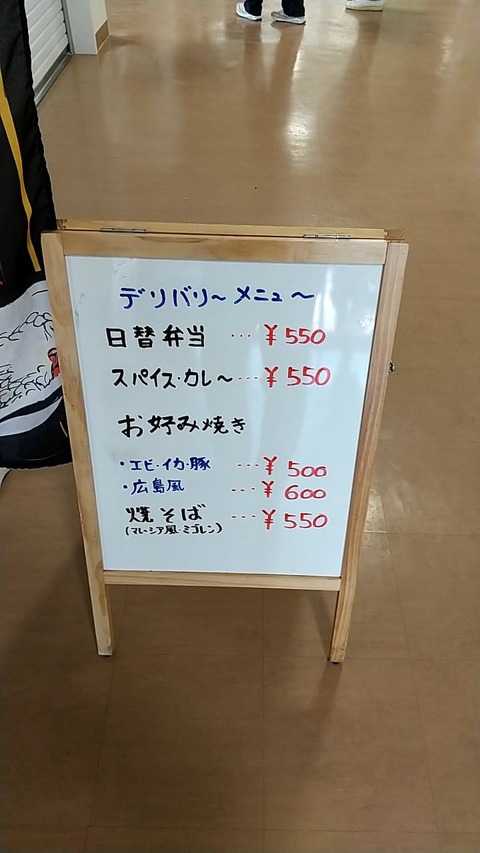 デリバリ〜メニュ〜
日替弁当 ･･･ ¥550
スパイス・カレ〜 ･･･ ¥550
お好み焼き
・エビ・イカ・豚 ････ ¥500
・広島風 ････ ¥600
焼そば ････ ¥550
(マレーシア風・ミゴレン)